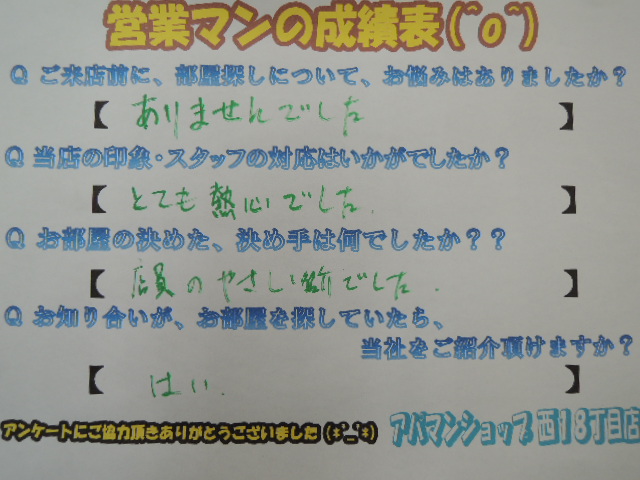 営業マンの成績表(^o^)
Q ご来店前に、部屋探しについて、お悩みはありましたか？
【 ありませんでした 】
Q 当店の印象・スタッフの対応はいかがでしたか？
【 とても熱心でした. 】
Q お部屋の決めた、決め手は何でしたか？？
【 店員のやさしい でした. 】
Q お知り合いが、お部屋を探していたら、
当社をご紹介頂けますか？
【 はい. 】
アンケートにご協力頂きありがとうございました(*^_^*)
アパマンショップ 西18丁目店